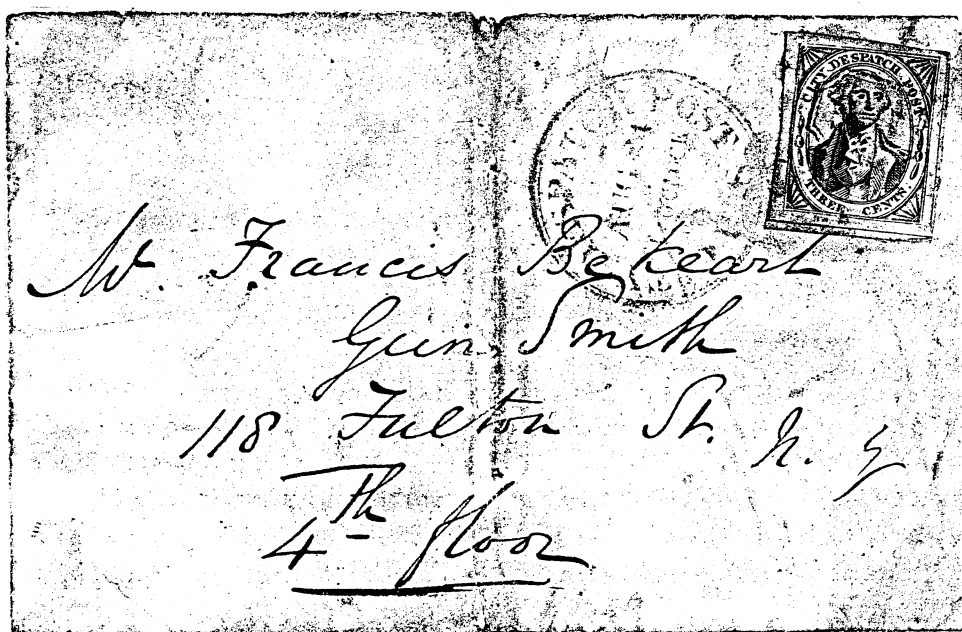 CITY DESPATCH POST
THREE CENTS
PATCH POST
AUG 24
O'CLOCK
Mr. Francis Bekeart
Gun Smith
118 Fulton St. N. Y
4th floor